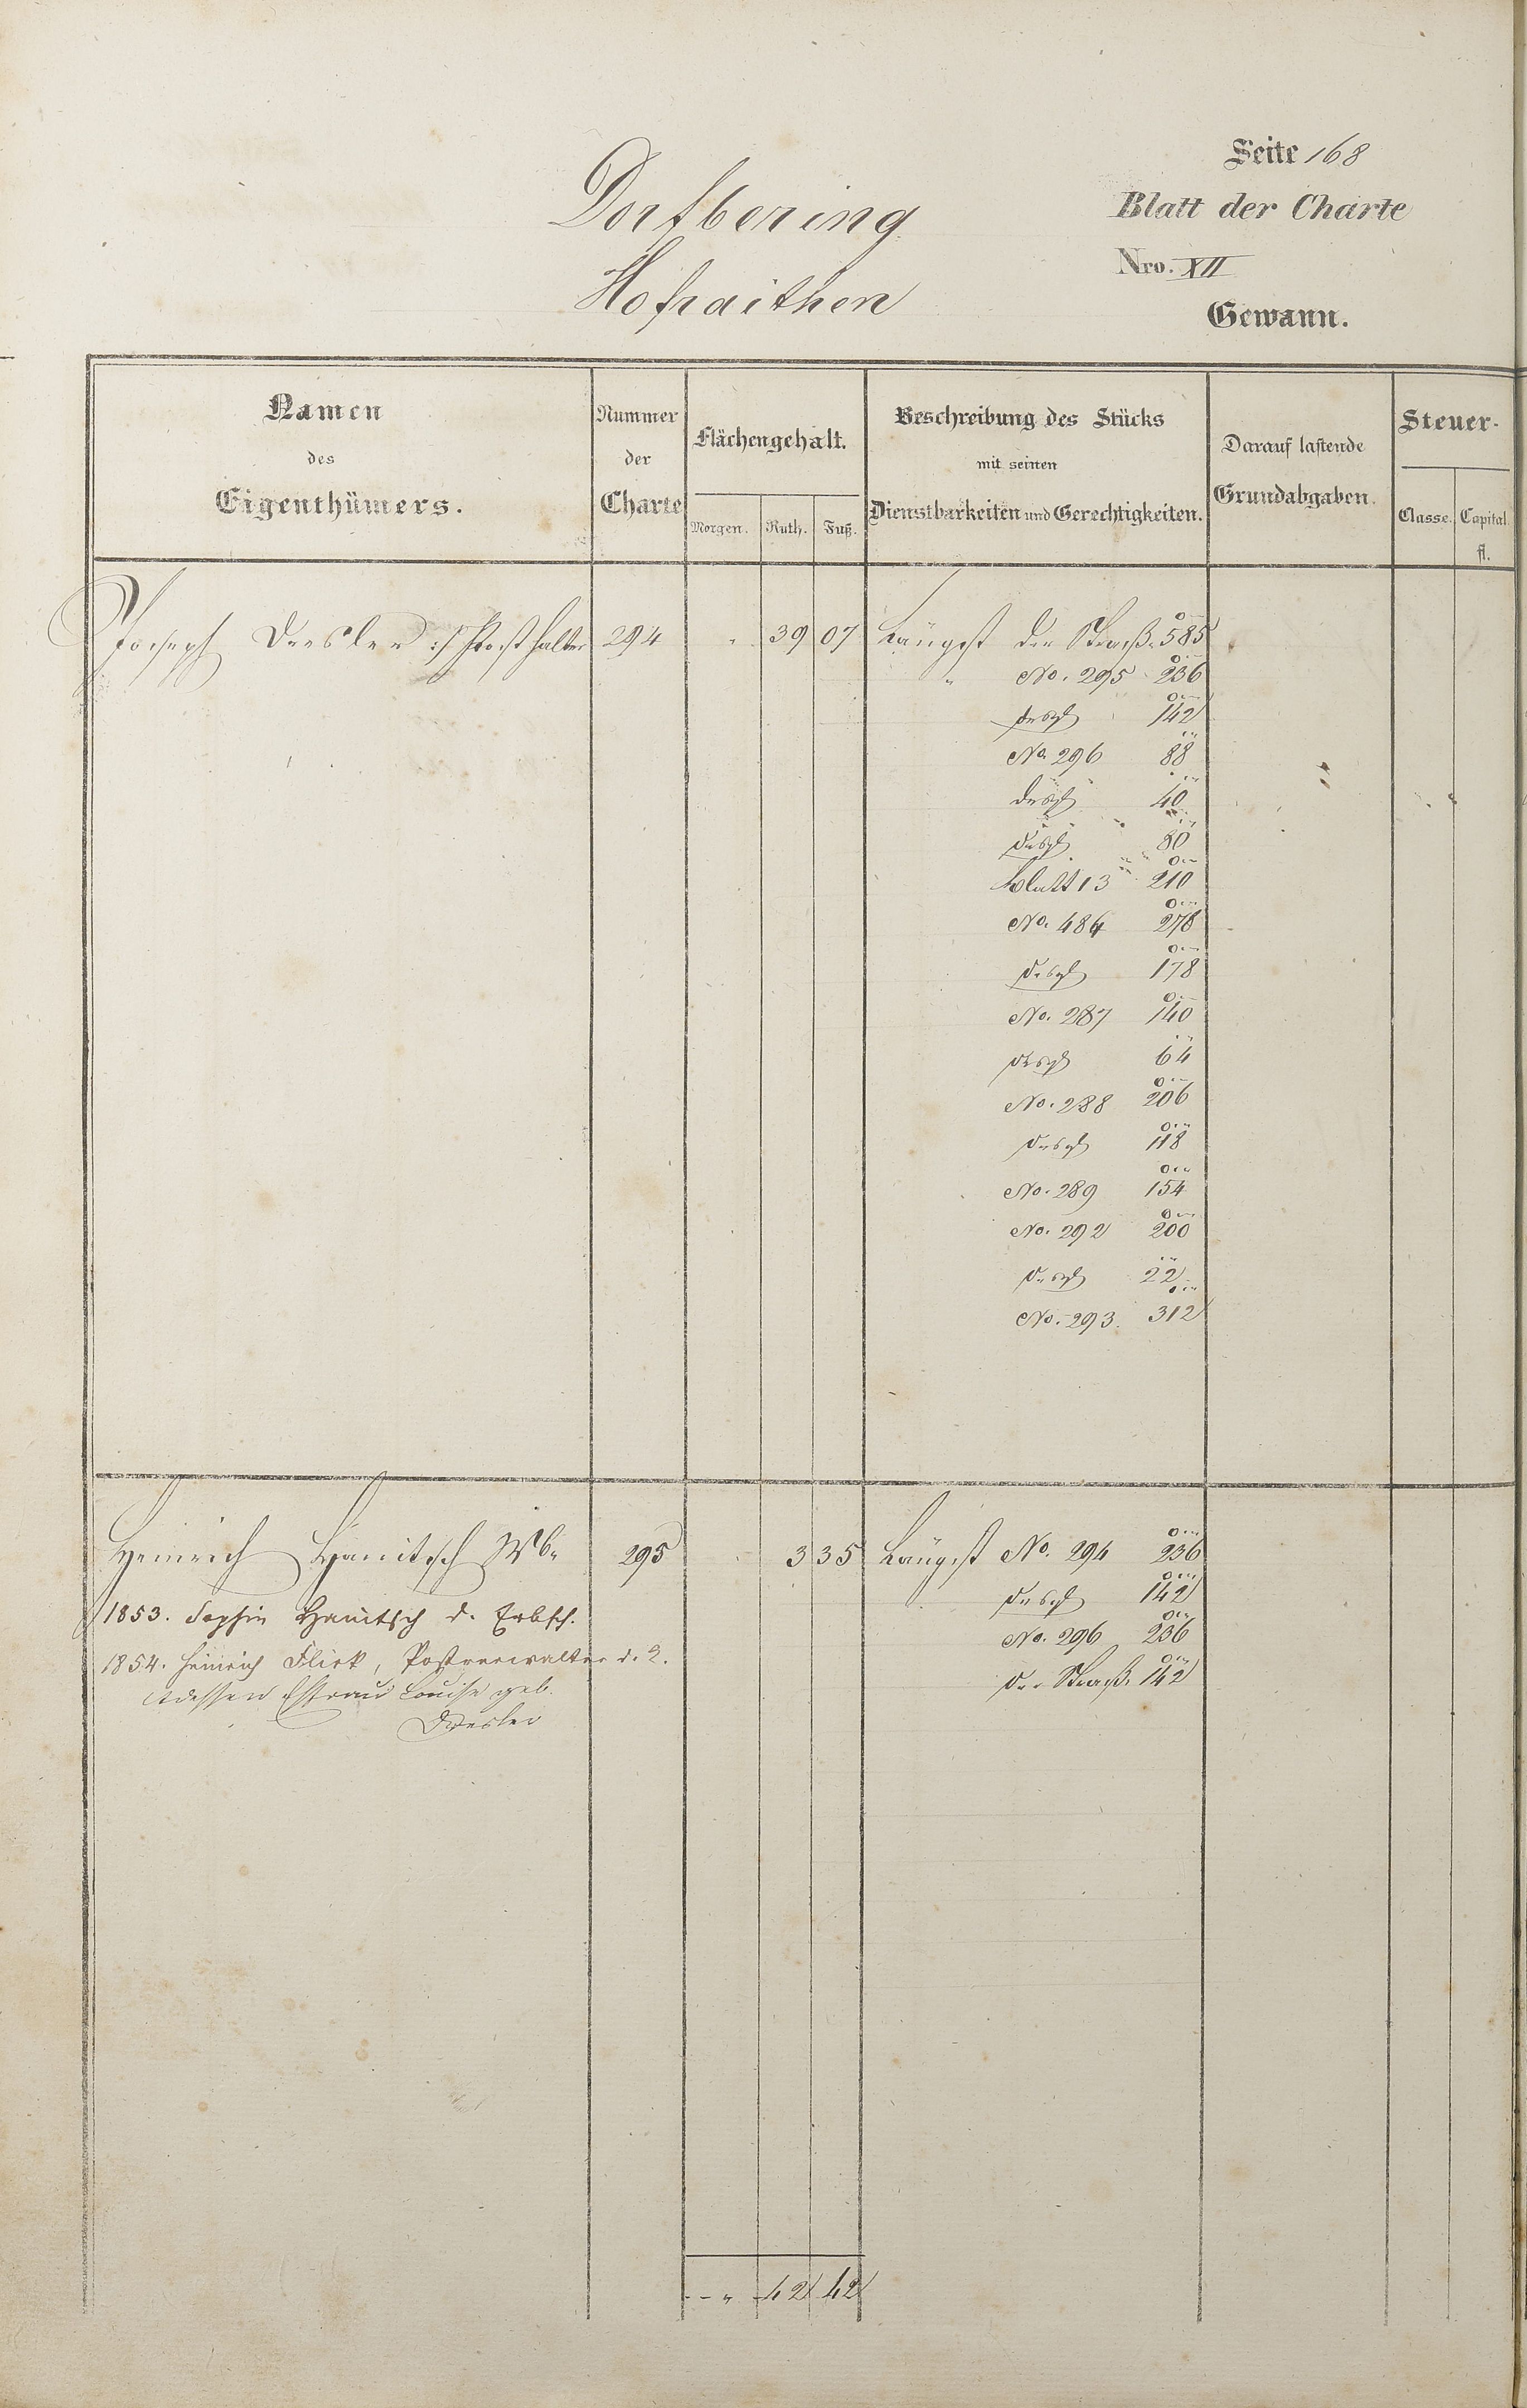 Seite 168
Dorfbering
Blatt der Charte
Hofraithen
Nro. XII
Gewann.
Namen des Eigenthümers.
Nummer der Charte
Flächengehalt.
Morgen. Ruth. Fuß.
Beschreibung des Stücks
mit seinen
Dienstbarkeiten und Gerechtigkeiten.
Darauf lastende
Grundabgaben.
Steuer-
Classe. Capital.
fl.
Joseph Dresler :/ Posthalter 294 " 39 07 Längst der Straß. 585
" No. 295 236
desgl 142
No. 296 88
desgl 40
desgl 80
Blatt 13 210
No. 484 278
desgl 178
No. 287 140
desgl 64
No. 288 206
desgl 118
No. 289 154
No. 292 200
desgl 22
No. 293. 312
Heinrich Hanitsch Wb. 295 3 35 Längst No. 294 236
desgl 142
1853. Sophie Hanitsch d. Erbsch.
No. 296 236
1854. Heinrich Flick, Postverwalter d. 2.
der Straß. 142
dessen Ehefrau Louise geb.
Dresler
" 42 42